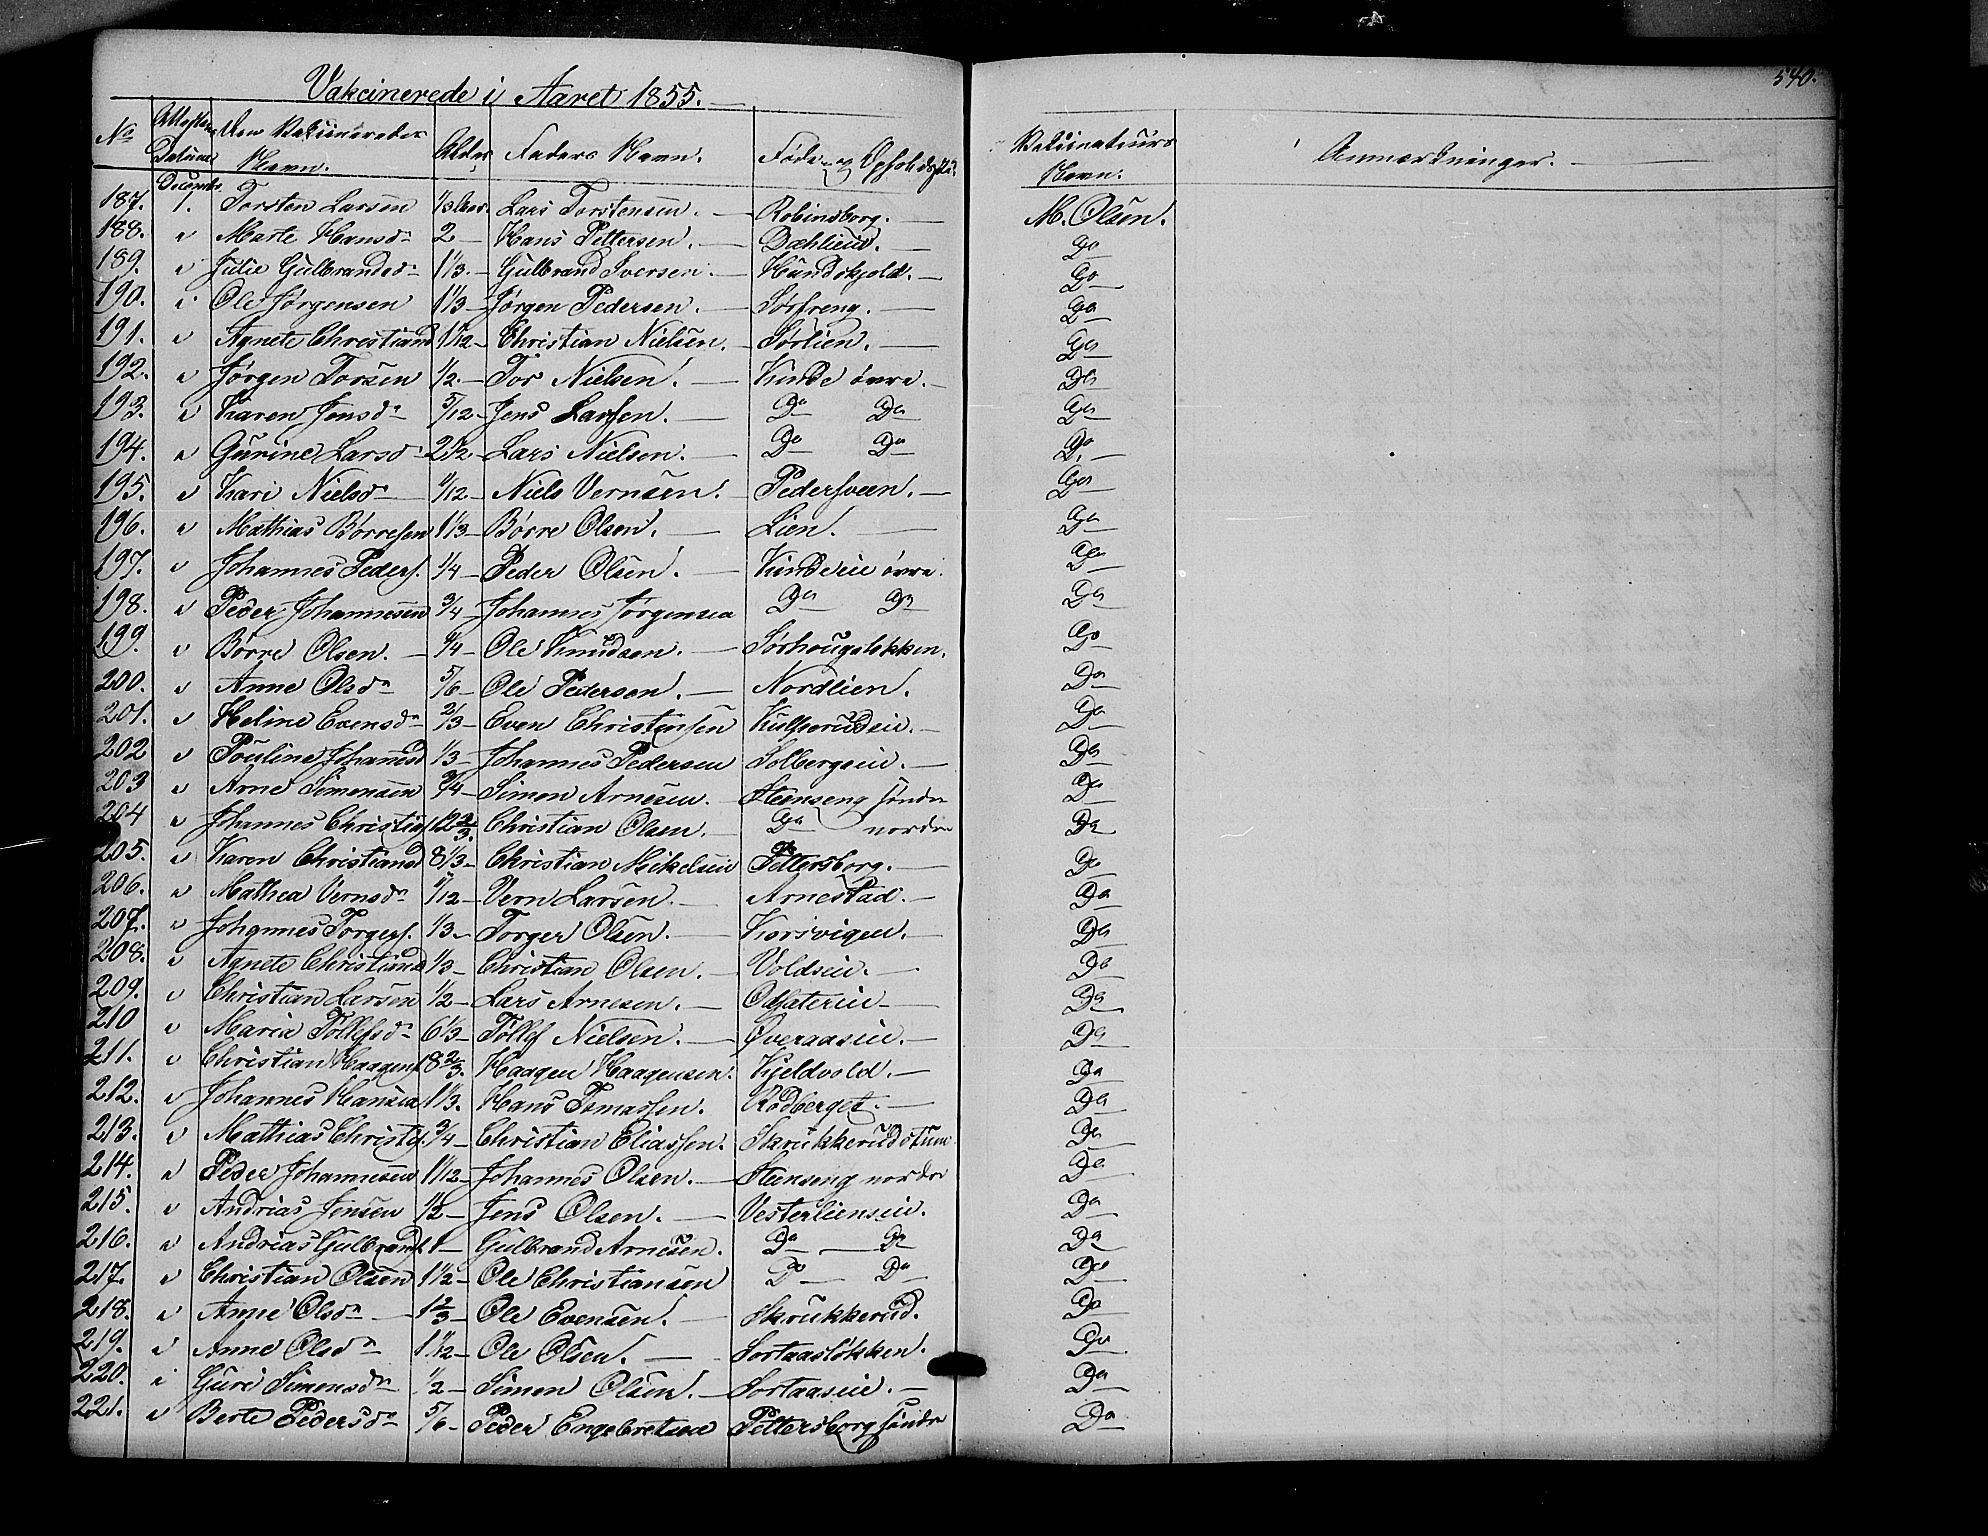 540.
Vakcinerede i Aaret 1855.
No Attestens Datum Den Vakcineredes Navn. Alder Faders Navn. Føde- og Opholdssted Vakcinateurs Navn. Anmærkninger.
Decembr.
187. 1. Torsten Larsen 1/3 Aar. Lars Torstensen. Robinsborg. M. Olsen.
188. " Marte Hansdr 2 Hans Pettersen. Dæhlieie. Do
189. " Julie Gulbrandsdr 1 1/3 Gulbrand Iversen. Hundskjold. Do
190. " Ole Jørgensen 1 1/3 Jørgen Pedersen. Sørfreng. Do
191. " Agnete Christiansd Christian Nielsen. Sørlien. Do
192. " Jørgen Torsen 1/2 Tor Nielsen. Kinde övre. Do
193. " Karen Jensdr 5/12 Jens Larssen. Do Do Do
194. " Gurine Larsdr 2 1/2 Lars Nielsen. Do Do Do
195. " Kari Nielsdr Niels Vernsen. Pedersveen. Do
196. " Mathias Børresen 1 1/3 Børre Olsen. Lien. Do
197. " Johannes Peders. 1/4 Peder Olsen. Kindeeie övre. Do
198. " Peder Johannesen 3/4 Johannes Jørgensen Do Do Do
199. " Børre Olsen. Ole Knudsen. Sørhougsløkken. Do
200. " Anne Olsdr 5/6 Ole Pedersen. Nordlien. Do
201. " Heline Evensdr 2/3 Even Christensen Kulserudeie. Do
202 " Pouline Johannesd 1/3 Johannes Pedersen Solbergeie. Do
203 " Arne Simensen 3/4 Simen Arnesen. Steenseng søndre Do
204 " Johannes Christia 12 2/3 Christian Olsen. Do nordre Do
205. " Karen Christiansd 8 1/3 Christian Mikelsen Pettersborg. Do
206. " Mathea Vernsdr Vern Larsen. Arnestad. Do
207. " Johannes Torgers. 1/3 Torger Olsen. Korsvigen. Do
208. " Agnete Christiansd 1/3 Christian Olsen. Voldseie. Do
209. " Christian Larsen 1/2 Lars Arnesen. Do
210 " Maria Tollefsdr 6 1/3 Tollef Nielsen. Øveraaseie. Do
211. " Christian Haagens 18 2/3. Haagen Haagensen. Kjeldvold. Do
212. " Johannes Hansen 1 1/3. Hans Tomassen. Rødberget. Do
213. " Mathias Christi. 3/4 Christian Eliassen. Skrukkerudstuen Do
214. " Peder Johannesen Johannes Olsen. Steenseng nordre Do
215. " Andrias Jensen 1/2 Jens Olsen. Vesterlienseie. Do
216. " Andrias Gulbrands. 1 Gulbrand Arnesen. Do Do Do
217. " Christian Olsen 1 1/2 Ole Christiansen Do Do Do
218. " Anne Olsdr 1 2/3 Ole Evensen. Skrukkerud. Do
219. " Anne Olsdr Ole Olsen. Sortaasløkken. Do
220. " Guri Simensdr 1/2 Simen Olsen. Sortaaseie. Do
221. " Berte Pedersdr 5/6 Peder Engebretsen Pettersborg søndre Do